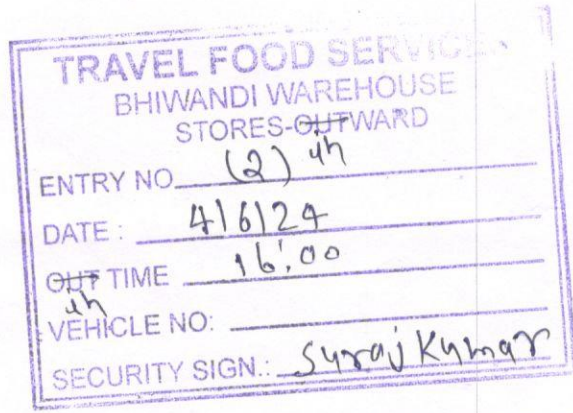 TRAVEL FOOD SERVICES
BHIWANDI WAREHOUSE
STORES-OUTWARD
in
ENTRY NO (2)
DATE : 4/6/24
OUT TIME 16:00
in
VEHICLE NO:
SECURITY SIGN.: Suraj Kumar